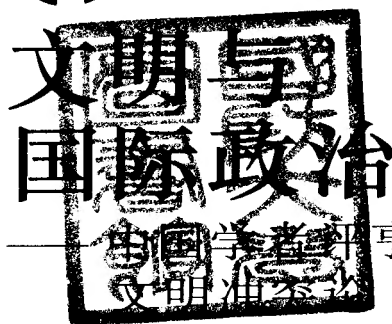 文明与
国际政治
——中国学者评亨
文明冲突论